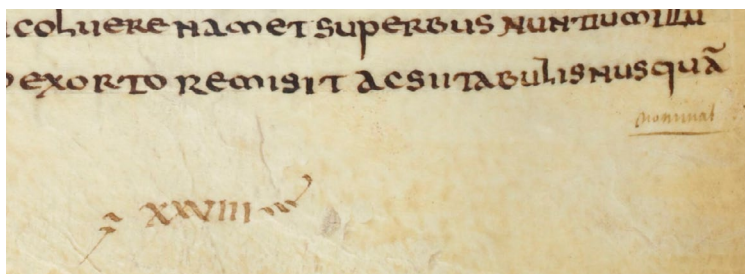 coluere nam et superbus nuntium illi
exorto remisit ac si tabulis nusquā
nominat
XXVIII